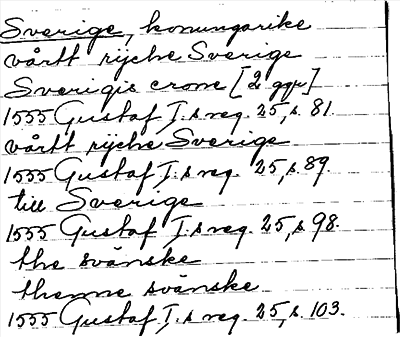 Sverige, konungarike
vårtt rijche Sverige
Sverigis crone [2 ggr]
1555 Gustaf I.s reg. 25, s. 81.
vårtt rijche Sverige
1555 Gustaf I.s reg. 25, s. 89.
till Sverige
1555 Gustaf I.s reg. 25, s. 98.
the svänske
thenne svänske
1555 Gustaf I.s reg. 25, s. 103.